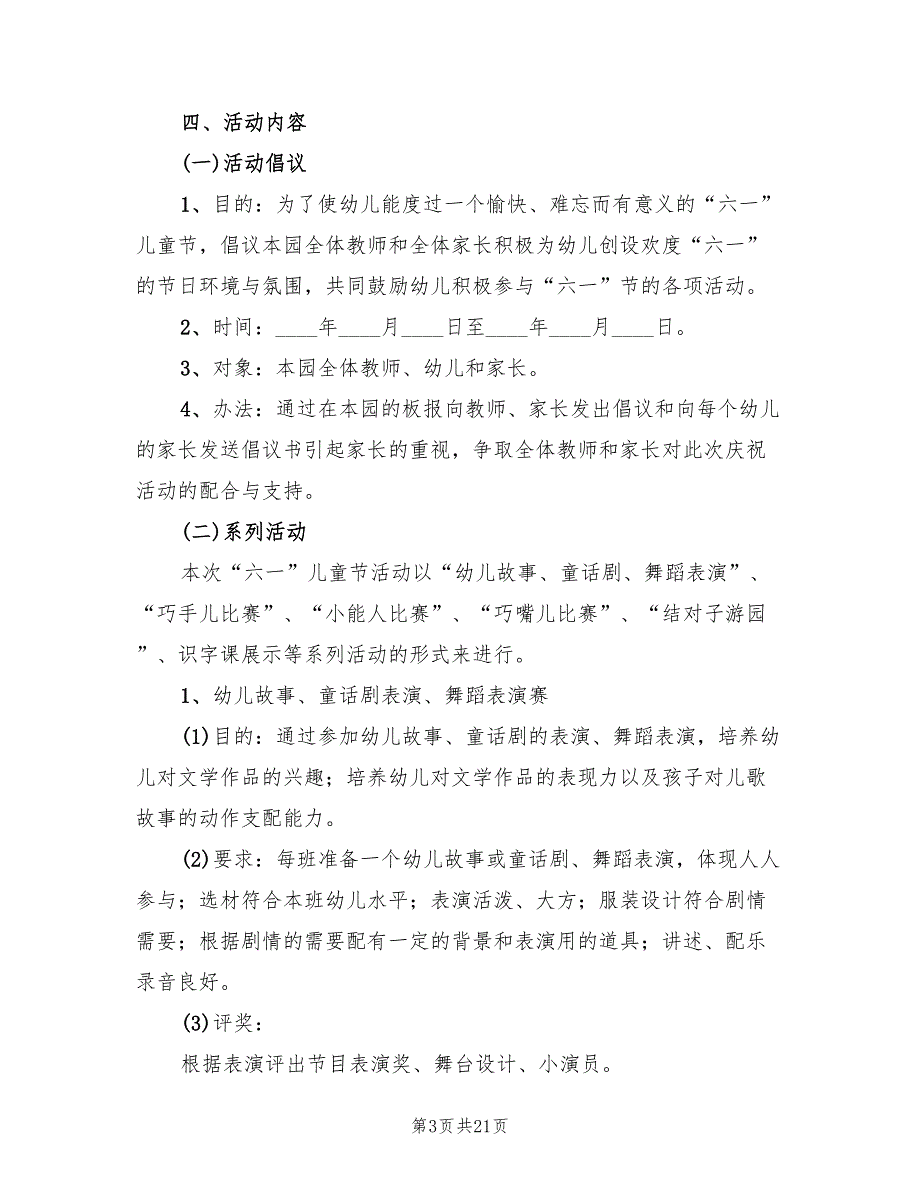 四、活动内容
(一)活动倡议
1、目的：为了使幼儿能度过一个愉快、难忘而有意义的“六一”
儿童节，倡议本园全体教师和全体家长积极为幼儿创设欢度“六一”
的节日环境与氛围，共同鼓励幼儿积极参与“六一”节的各项活动。
2、时间：____年____月____日至____年____月____日。
3、对象：本园全体教师、幼儿和家长。
4、办法：通过在本园的板报向教师、家长发出倡议和向每个幼儿
的家长发送倡议书引起家长的重视，争取全体教师和家长对此次庆祝
活动的配合与支持。
(二)系列活动
本次“六一”儿童节活动以“幼儿故事、童话剧、舞蹈表演”、
“巧手儿比赛”、“小能人比赛”、“巧嘴儿比赛”、“结对子游园
”、识字课展示等系列活动的形式来进行。
1、幼儿故事、童话剧表演、舞蹈表演赛
(1)目的：通过参加幼儿故事、童话剧的表演、舞蹈表演，培养幼
儿对文学作品的兴趣；培养幼儿对文学作品的表现力以及孩子对儿歌
故事的动作支配能力。
(2)要求：每班准备一个幼儿故事或童话剧、舞蹈表演，体现人人
参与；选材符合本班幼儿水平；表演活泼、大方；服装设计符合剧情
需要；根据剧情的需要配有一定的背景和表演用的道具；讲述、配乐
录音良好。
(3)评奖：
根据表演评出节目表演奖、舞台设计、小演员。
第3页共21页